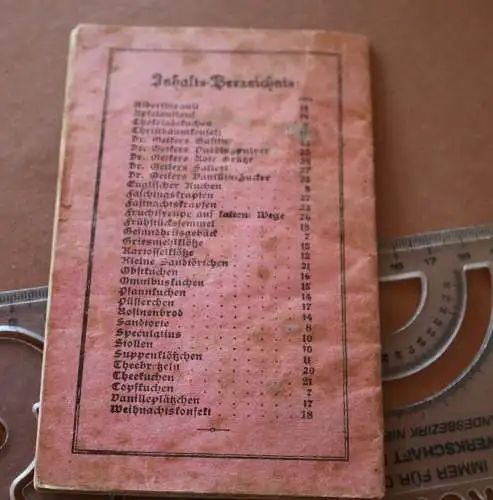 Inhalts-Verzeichnis:
Albertbiscuit
Apfelauflauf
Chokoladekuchen
Christbaumkonfekt
Dr. Oetkers Gustin
Dr. Oetkers Puddingpulver
Dr. Oetkers Rote Grütze
Dr. Oetkers Salicyl 27
Dr. Oetkers Vanillin-Zucker 28
Englischer Kuchen 8
Faschingskrapfen 27
Fastnachtskrapfen 23
Fruchtsuppe auf kaltem Wege 26
Frühstücksemmel 15
Gesundheitsgebäck 7
Griesmehlklöße 15
Kartoffelklöße 12
Kleine Sandtörtchen 21
Obstkuchen 14
Omnibuskuchen 15
Pfannkuchen 14
Püfferchen 17
Rosinenbrod 14
Sandtorte 8
Speculatius 10
Stollen 10
Suppenklößchen 11
Theebretzeln 20
Theekuchen 21
Topfkuchen 7
Vanilleplätzchen 17
Weihnachtskonfekt 18
16 17
NDESBEZIRK NIE
WERKSCHAFT
IMMER FÜR